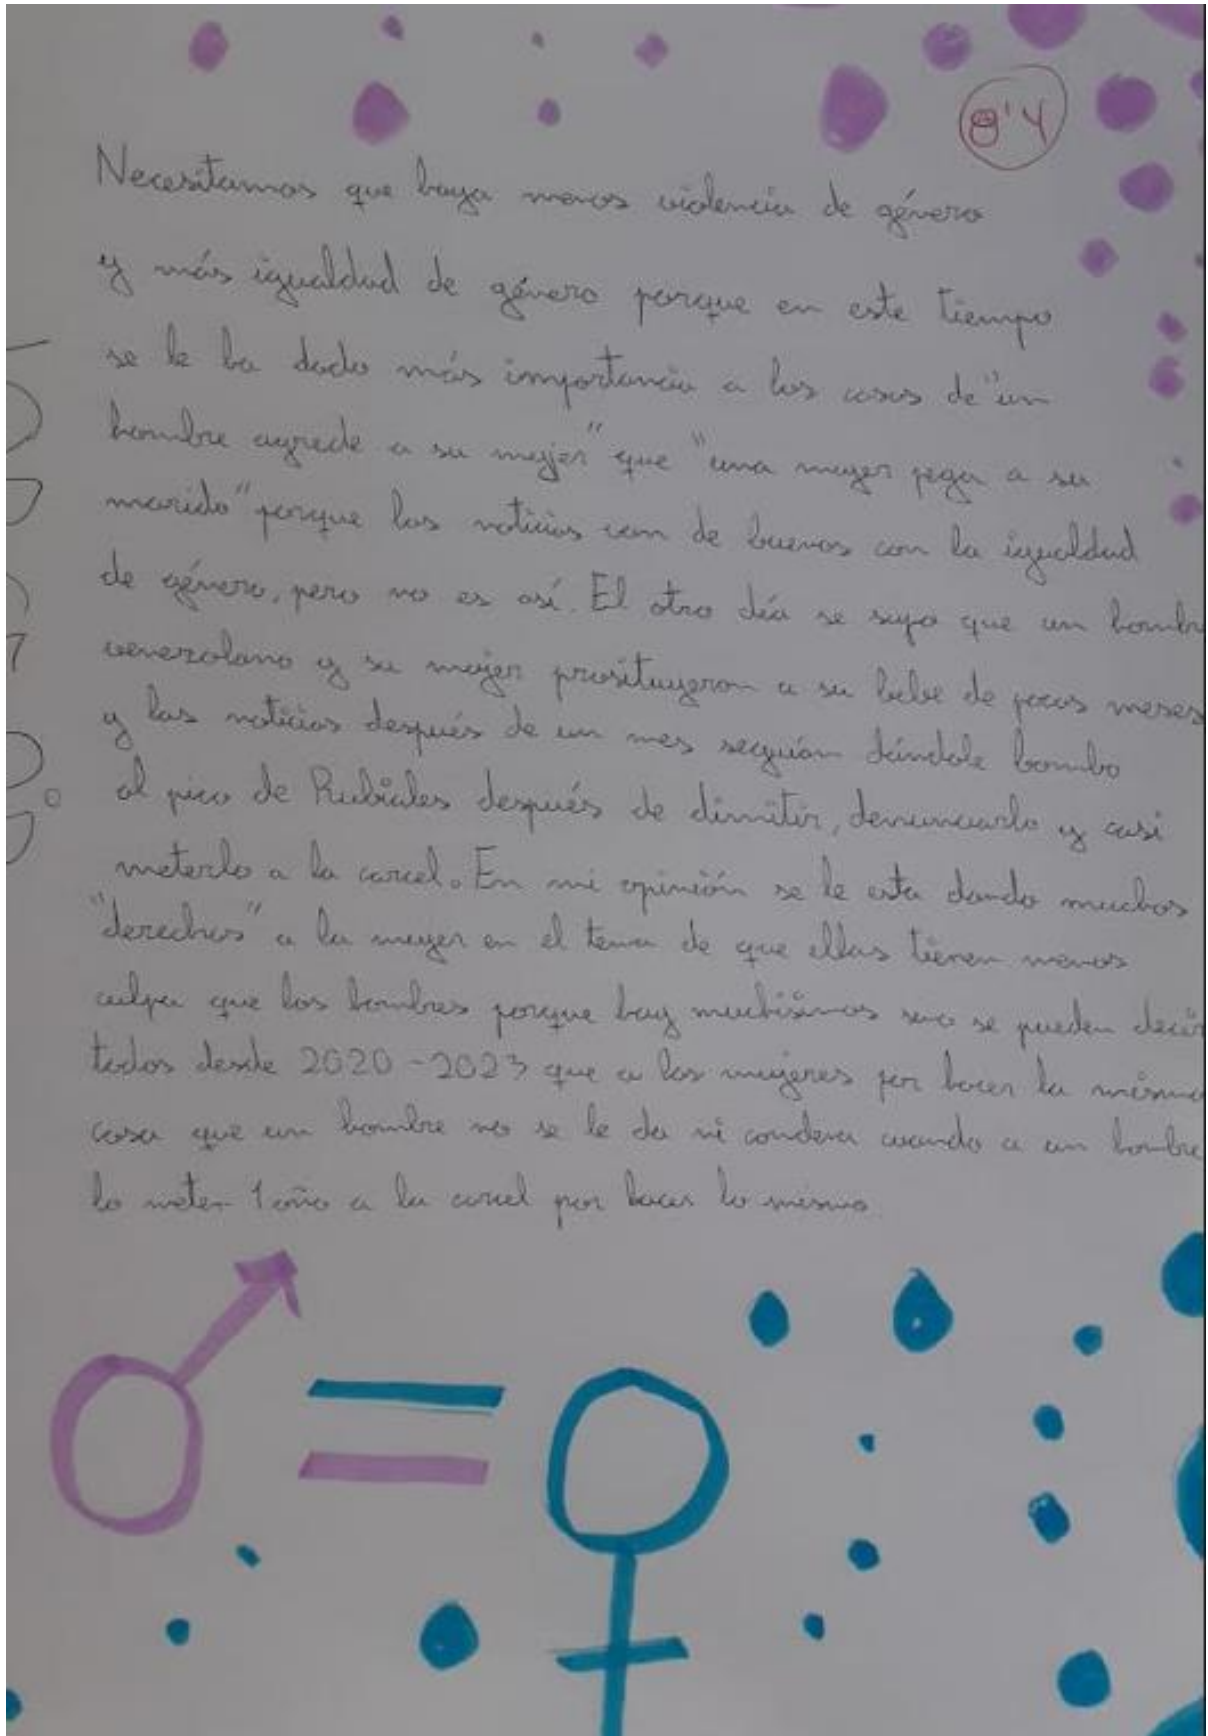 8'4
Necesitamos que haya menos violencia de género
y más igualdad de género porque en este tiempo
se le ha dado más importancia a los casos de "un
hombre agrede a su mujer" que "una mujer pega a su
marido" porque las noticias van de buenas con la igualdad
de género, pero no es así. El otro día se supo que un hombre
venezolano y su mujer prosituyeron a su bebe de pocos meses
y las noticias después de un mes seguían dándole bombo
al pico de Rubiales después de dimitir, denunciarlo y casi
meterlo a la carcel. En mi opinión se le esta dando muchos
"derechos" a la mujer en el tema de que ellas tienen menos
culpa que los hombres porque hay muchísimos se pueden decir
todos desde 2020-2023 que a las mujeres por hacer la misma
cosa que un hombre no se le da ni condena cuando a un hombre
lo meten 1 año a la carcel por hacer lo mismo.